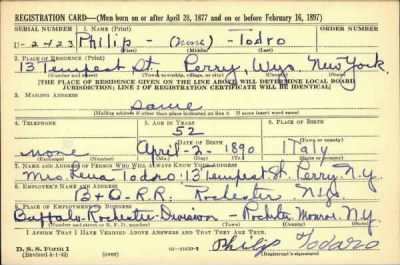 REGISTRATION CARD—(Men born on or after April 28, 1877 and on or before February 16, 1897)
SERIAL NUMBER 1. NAME (Print) ORDER NUMBER
U-2423 Philip - (none) - Todro
(First) (Middle) (Last)
2. PLACE OF RESIDENCE (Print)
13 Tempest St. Perry, Wyo. New York.
(Number and street) (Town, township, village, or city) (County) (State)
[THE PLACE OF RESIDENCE GIVEN ON THE LINE ABOVE WILL DETERMINE LOCAL BOARD
JURISDICTION; LINE 2 OF REGISTRATION CERTIFICATE WILL BE IDENTICAL]
3. MAILING ADDRESS
same
[Mailing address if other than place indicated on line 2. If same insert word same]
4. TELEPHONE 5. AGE IN YEARS 6. PLACE OF BIRTH
52
DATE OF BIRTH (Town or county)
none April - 2 - 1890 Italy
(Exchange) (Number) (Mo.) (Day) (Yr.) (State or country)
7. NAME AND ADDRESS OF PERSON WHO WILL ALWAYS KNOW YOUR ADDRESS
Mrs. Lena Todoro 13 Tempest St. Perry N.Y.
8. EMPLOYER'S NAME AND ADDRESS
B + O. R.R. Rochester N.Y.
9. PLACE OF EMPLOYMENT OR BUSINESS
Buffalo-Rochester Division - Rochester Monroe N.Y.
(Number and street or R. F. D. number) (Town) (County) (State)
I AFFIRM THAT I HAVE VERIFIED ABOVE ANSWERS AND THAT THEY ARE TRUE.
D. S. S. Form 1
(Revised 4-1-42) (over) Philip Todaro
(Registrant's signature)